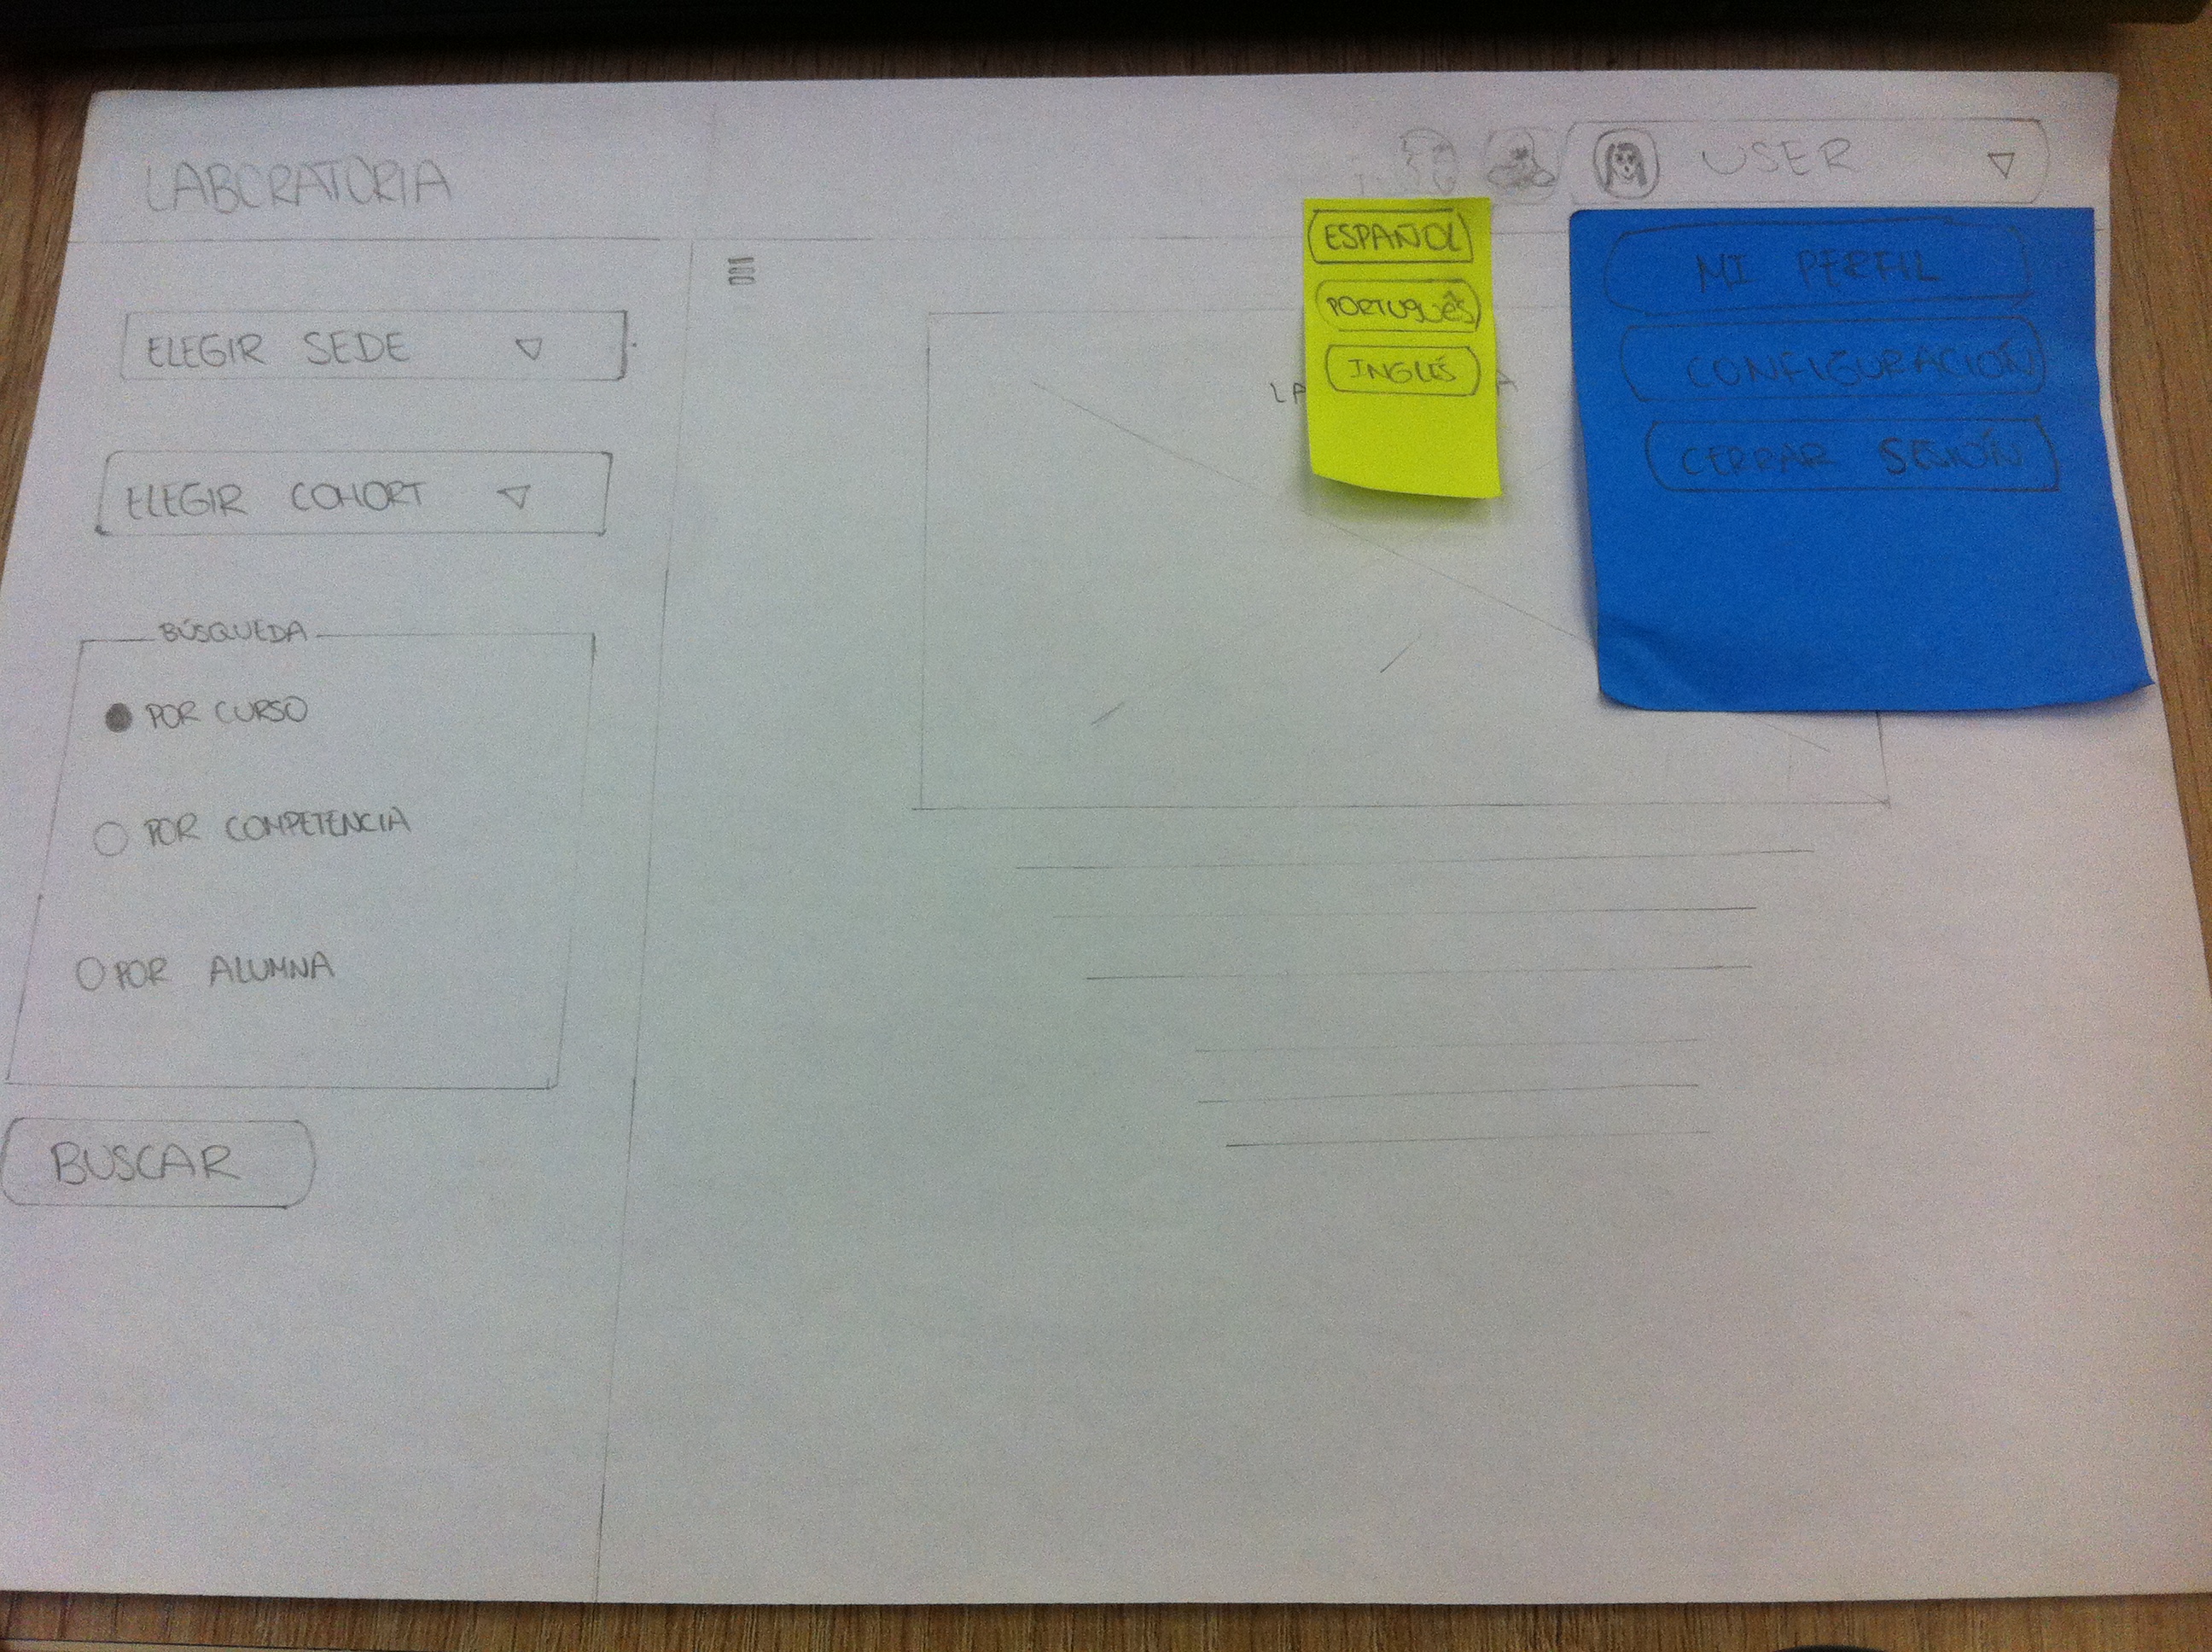 LABORATORIA
USER
ESPAÑOL
PORTUGUÊS
INGLÉS
MI PERFIL
CONFIGURACIÓN
CERRAR SESIÓN
ELEGIR SEDE
ELEGIR COHORT
BÚSQUEDA
POR CURSO
POR COMPETENCIA
POR ALUMNA
BUSCAR